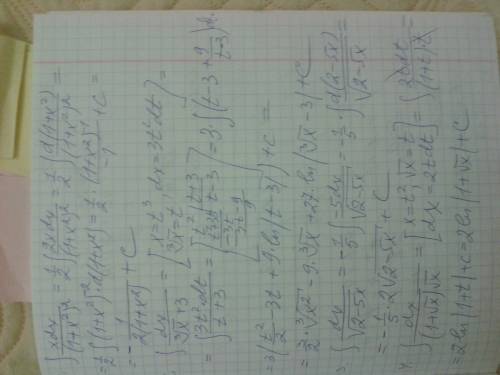 ∫ xdx/(1+x²)² = 1/2 ∫ 2xdx/(1+x²)² = 1/2 ∫ d(1+x²)/(1+x²)² =
= 1/2 ∫ (1+x²)⁻² d(1+x²) = 1/2 · (1+x²)⁻¹/-1 + C =
= - 1/2(1+x²) + C
∫ dx/(∛x+3) = [x=t³, ∛x=t, dx=3t²dt] =
= ∫ 3t²dt/(t+3) = [t² | t+3, t²+3t | t-3, -3t, -3t-9, 9] = 3∫(t-3+9/(t-3))dt
= 3(t²/2 - 3t + 9ln|t-3|) + C =
= 3/2 ∛x² - 9·∛x + 27·ln|∛x-3| + C
3. ∫ dx/√(2-5x) = -1/5 ∫ -5dx/√(2-5x) = -1/5 ∫ d(2-5x)/√(2-5x) =
= -1/5 · 2√(2-5x) + C
4. ∫ dx/((1+√x)√x) = [x=t², √x=t, dx=2tdt] = ∫ 2tdt/((1+t)t) =
= 2ln|1+t| + C = 2ln|1+√x| + C